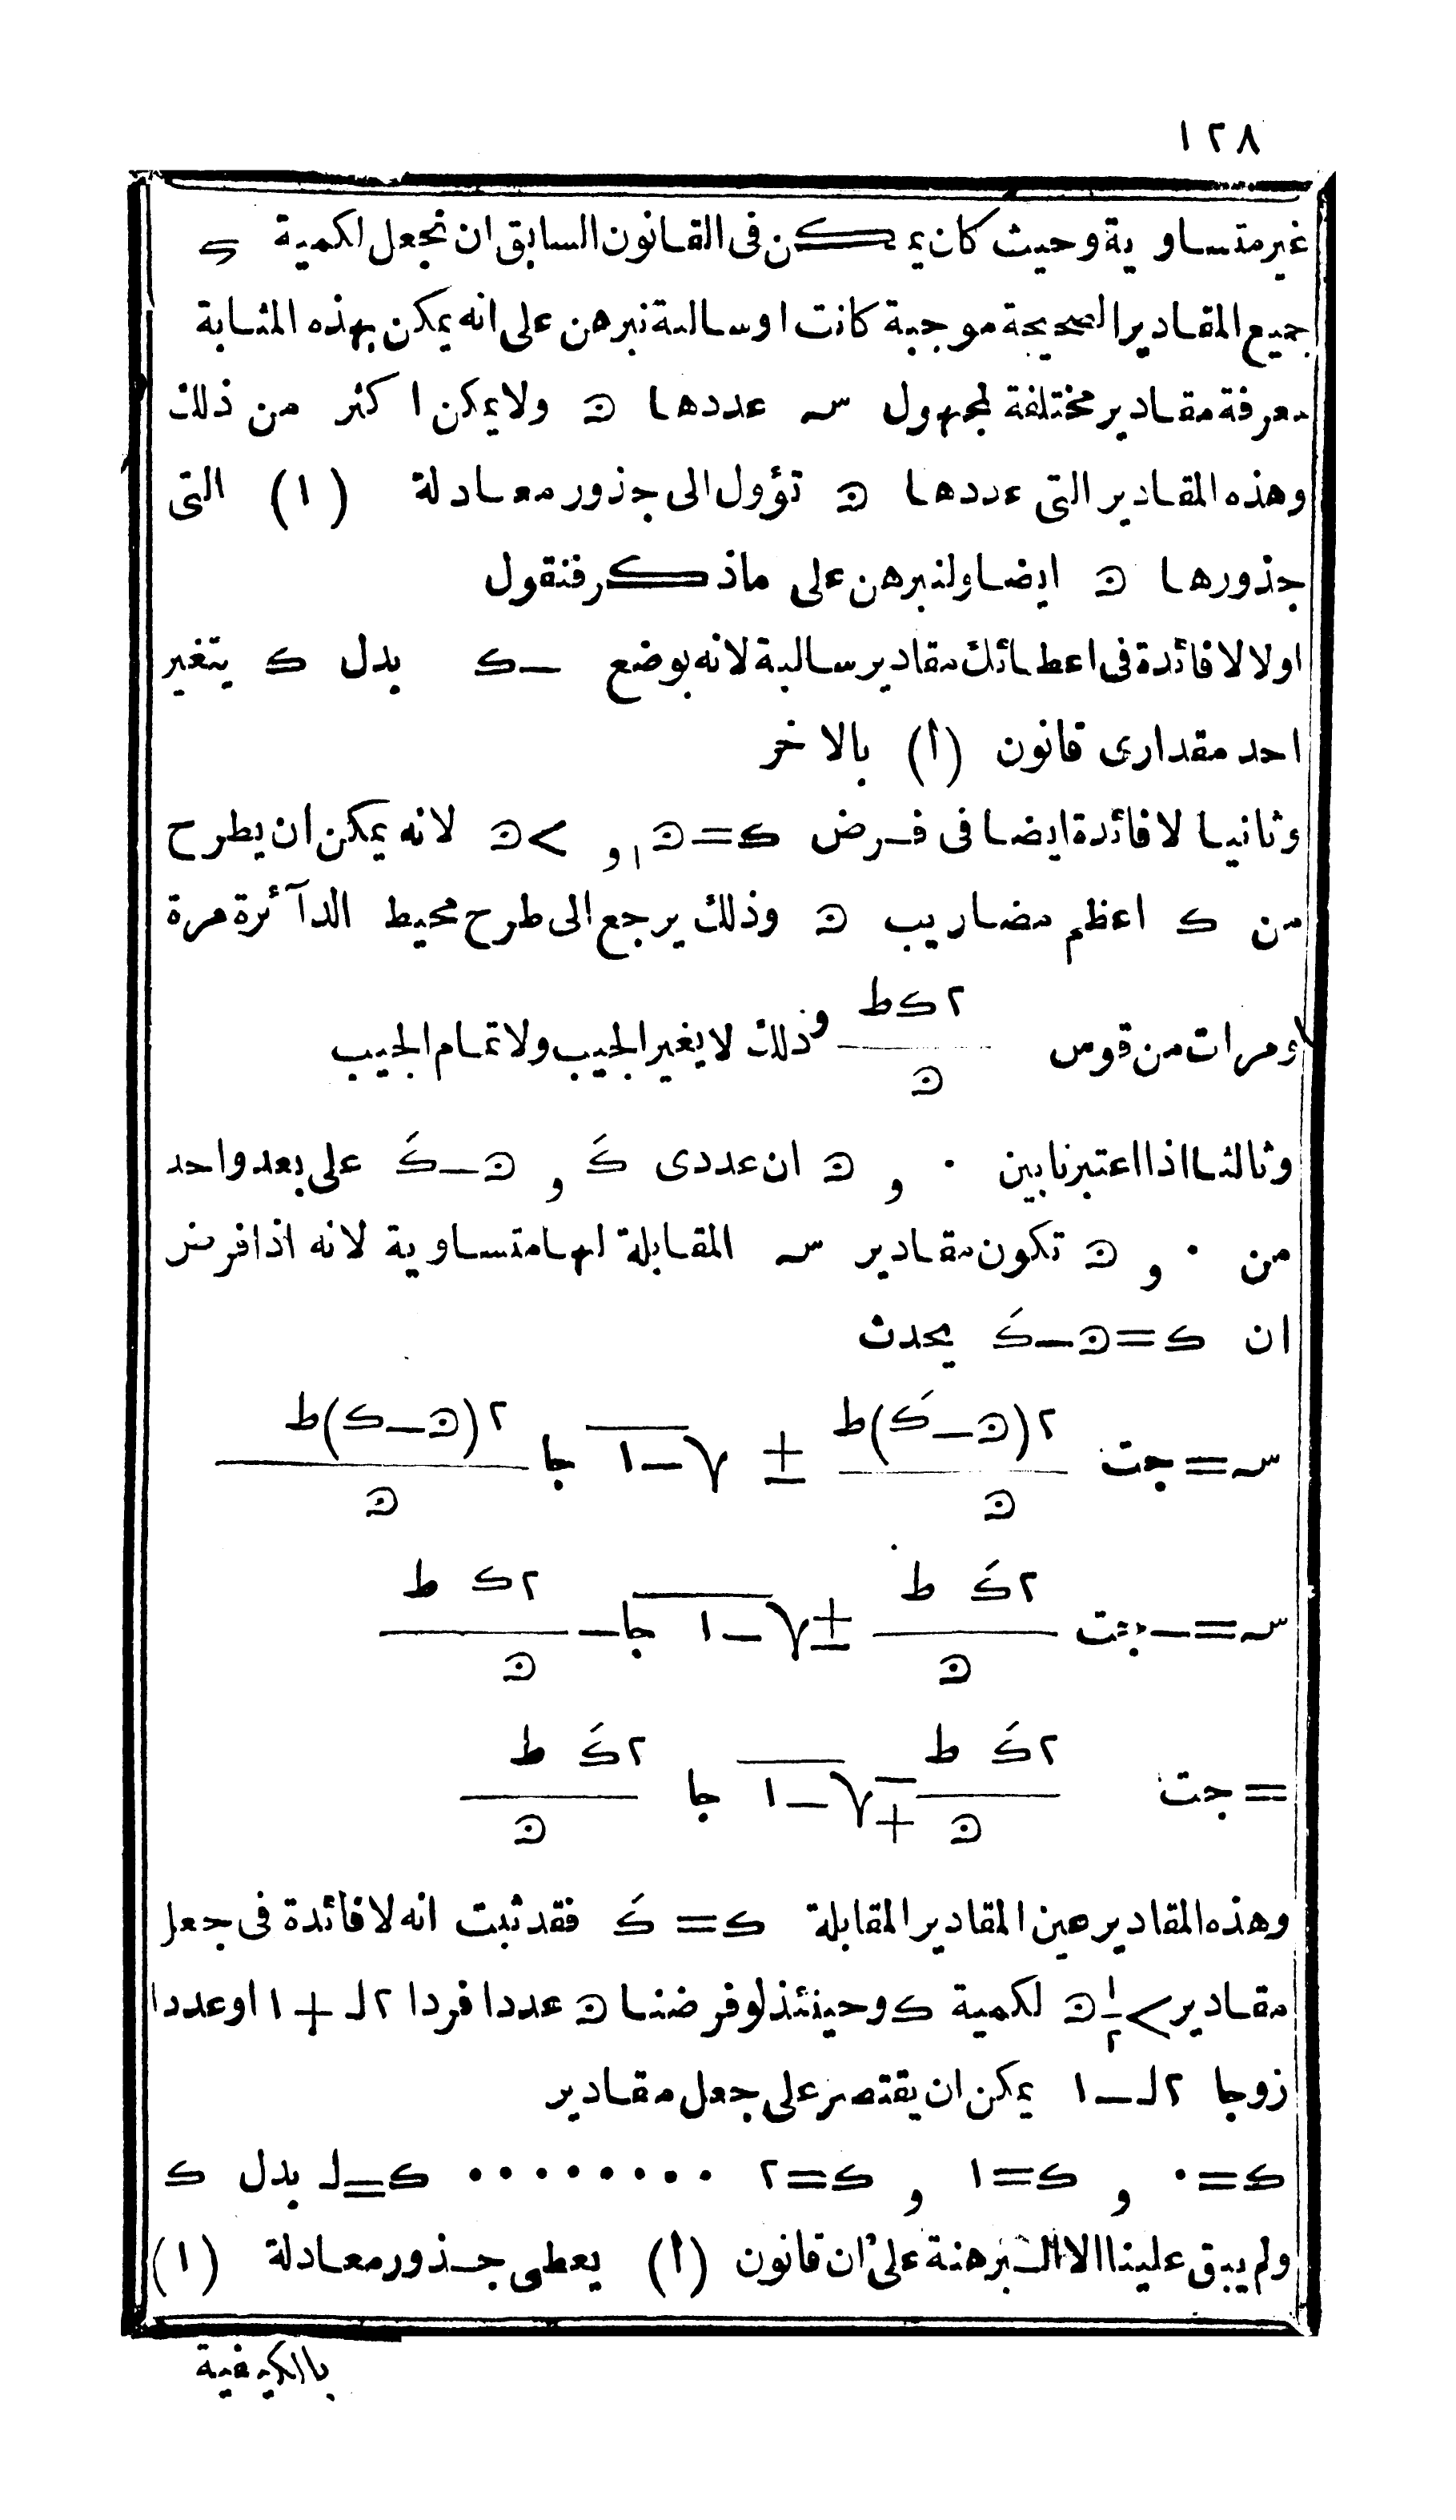 ١٢٨
غير متساوية وحيث كان يمكن فى القانون السابق ان نجعل لكمية ك
جميع المقادير الصحيحة موجبة كانت او سالبة نبرهن على انه يمكن بهذه المثابة
معرفة مقادير مختلفة لمجهول س عددها ن ولا يمكن اكثر من ذلك
وهذه المقادير التى عددها ن تؤول الى جذور معادلة (١) التى
جذورها ن ايضا ولنبرهن على ما ذكر فنقول
اولا لا فائدة فى اعطائك مقادير سالبة لانه بوضع -ك بدل ك يتغير
احد مقدارى قانون (أ) بالاخر
وثانيا لا فائدة ايضا فى فرض ك=ن او >ن لانه يمكن ان يطرح
من ك اعظم مضاريب ن وذلك يرجع الى طرح محيط الدآئرة مرة
او مرات من قوس ٢ك ط/ن وذلك لا يغير الجيب ولا تمام الجيب
وثالثا اذا اعتبرنا بين ٠ و ن ان عددى كَ و ن-كَ على بعد واحد
من ٠ و ن تكون مقادير س المقابلة لهما متساوية لانه اذا فرض
ان ك=ن-كَ يحدث
س=جت ٢(ن-كَ)ط/ن ± √-١ جا ٢(ن-ك)ط/ن
س=-جت ٢كَ ط/ن ± √-١ جا- ٢ك ط/ن
=جت ٢كَ ط/ن ∓ √-١ جا ٢كَ ط/ن
وهذه المقادير عين المقادير المقابلة ك=كَ فقد ثبت انه لا فائدة فى جعل
مقادير >١/٢ن لكمية ك وحينئذ لو فرضنا ن عددا فردا ٢ل+١ او عددا
زوجا ٢ل-١ يمكن ان يقتصر على جعل مقادير
ك=٠ و ك=١ و ك=٢ ········· ك=ل بدل ك
ولم يبق علينا الا البرهنة على ان قانون (أ) يعطى جذور معادلة (١)
بالكيفية